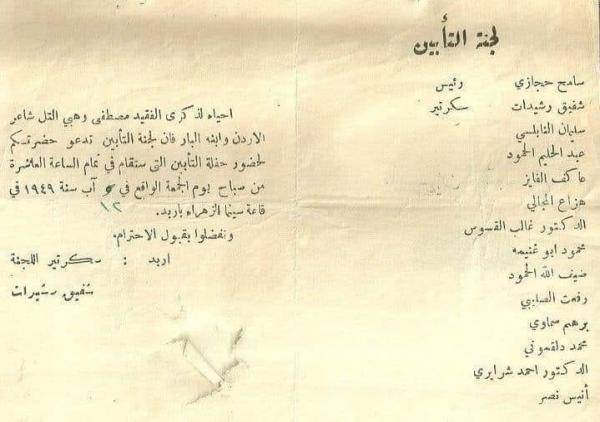 لجنة التأبين
سامح حجازي رئيس
شفيق رشيدات سكرتير
سليمان النابلسي
عبد الحليم الحمود
عاكف الفايز
هزاع المجالي
الدكتور غالب القسوس
محمود ابو غنيمه
ضيف الله الحمود
رفعت الصليبي
برهم سماوي
محمد دلقموني
الدكتور احمد شرايري
أنيس نصر
احياء لذكرى الفقيد مصطفى وهبي التل شاعر
الاردن وابنه البار فان لجنة التأبين تدعو حضرتكم
لحضور حفلة التأبين التي ستقام في تمام الساعة العاشرة
من صباح يوم الجمعة الواقع في ٥ آب سنة ١٩٤٩ في
١٢
قاعة سينما الزهراء باربد.
وتفضلوا بقبول الاحترام.
اربد : سكرتير اللجنة
شفيق رشيدات